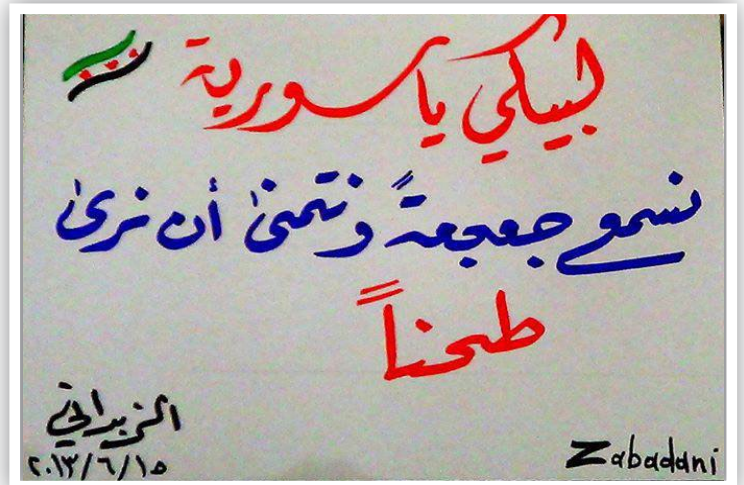 لبيكي يا سورية
نسمع جعجعةً ونتمنىٰ أن نرىٰ
طحناً
الزبداني
٢٠١٣/٦/١٥
Zabadani